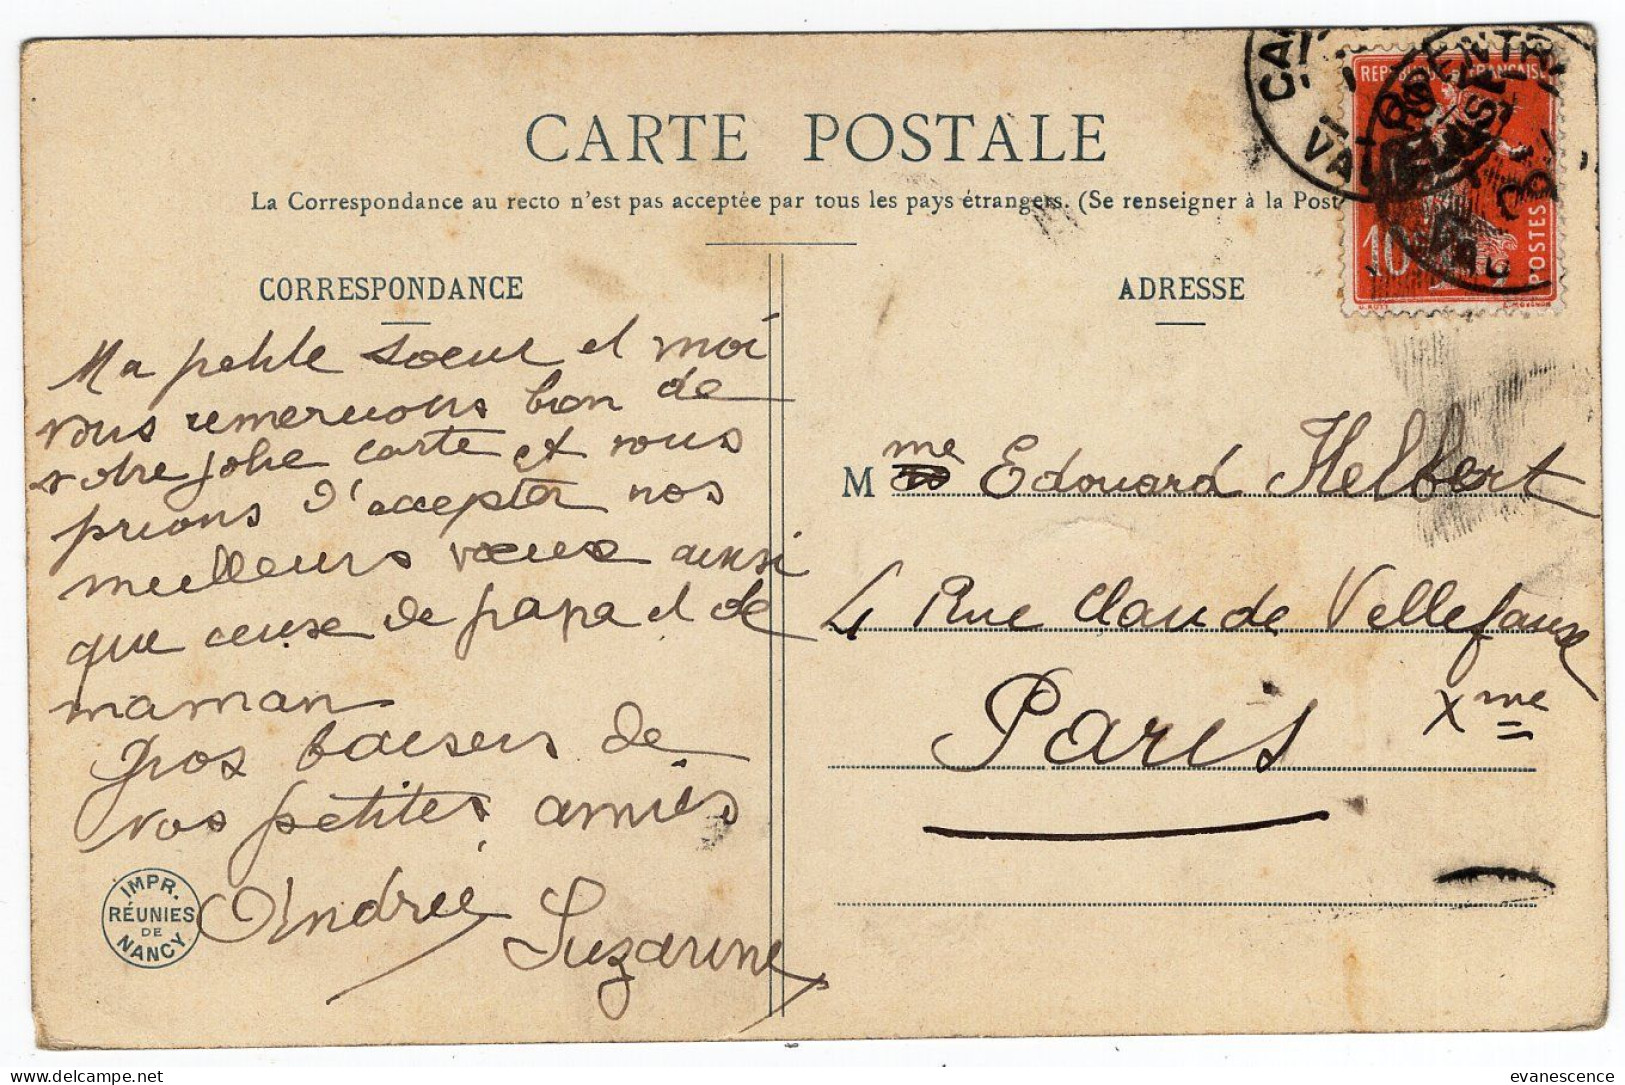 CARTE POSTALE
La Correspondance au recto n'est pas acceptée par tous les pays étrangers. (Se renseigner à la Post
CORRESPONDANCE
Ma petite soeur et moi
vous remercions bien de
votre jolie carte et vous
prions d'accepter nos
meilleurs vœux ainsi
que ceux de papa et de
maman
Gros baisers de
vos petites amies
Andrée
Suzanne
IMPR.
RÉUNIES
DE
NANCY
ADRESSE
Mme Edouard Helbert
4 Rue Claude Vellefaux
Paris
Xme
REPUBLIQUE FRANÇAISE
10
POSTES
evanescence